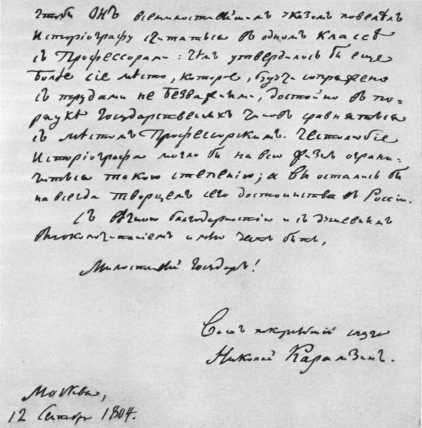 чтобы ОНЪ всемилостивѣйшимъ указомъ повелѣлъ
Исторіографу считаться въ одномъ классѣ
съ Профессорами: чѣмъ утвердилось бы еще
болѣе сіе мѣсто, которое, будучи сопряжено
съ трудами не безважными, достойно въ по-
рядкѣ Государственныхъ чиновъ сравняться
съ мѣстомъ Профессорскимъ. Честолюбіе
Исторіографа могло бы на всю жизнь ограни-
читься такою степенію; а Вы остались бы
навсегда творцемъ сего достоинства въ Россіи.
Съ вѣчною благодарностію и съ душевнымъ
высокопочитаніемъ имѣю честь быть,
Милостивый Государь!
Вашъ покорнѣйшій слуга
Николай Карамзинъ.
Москва,
12 Сентябр 1804.